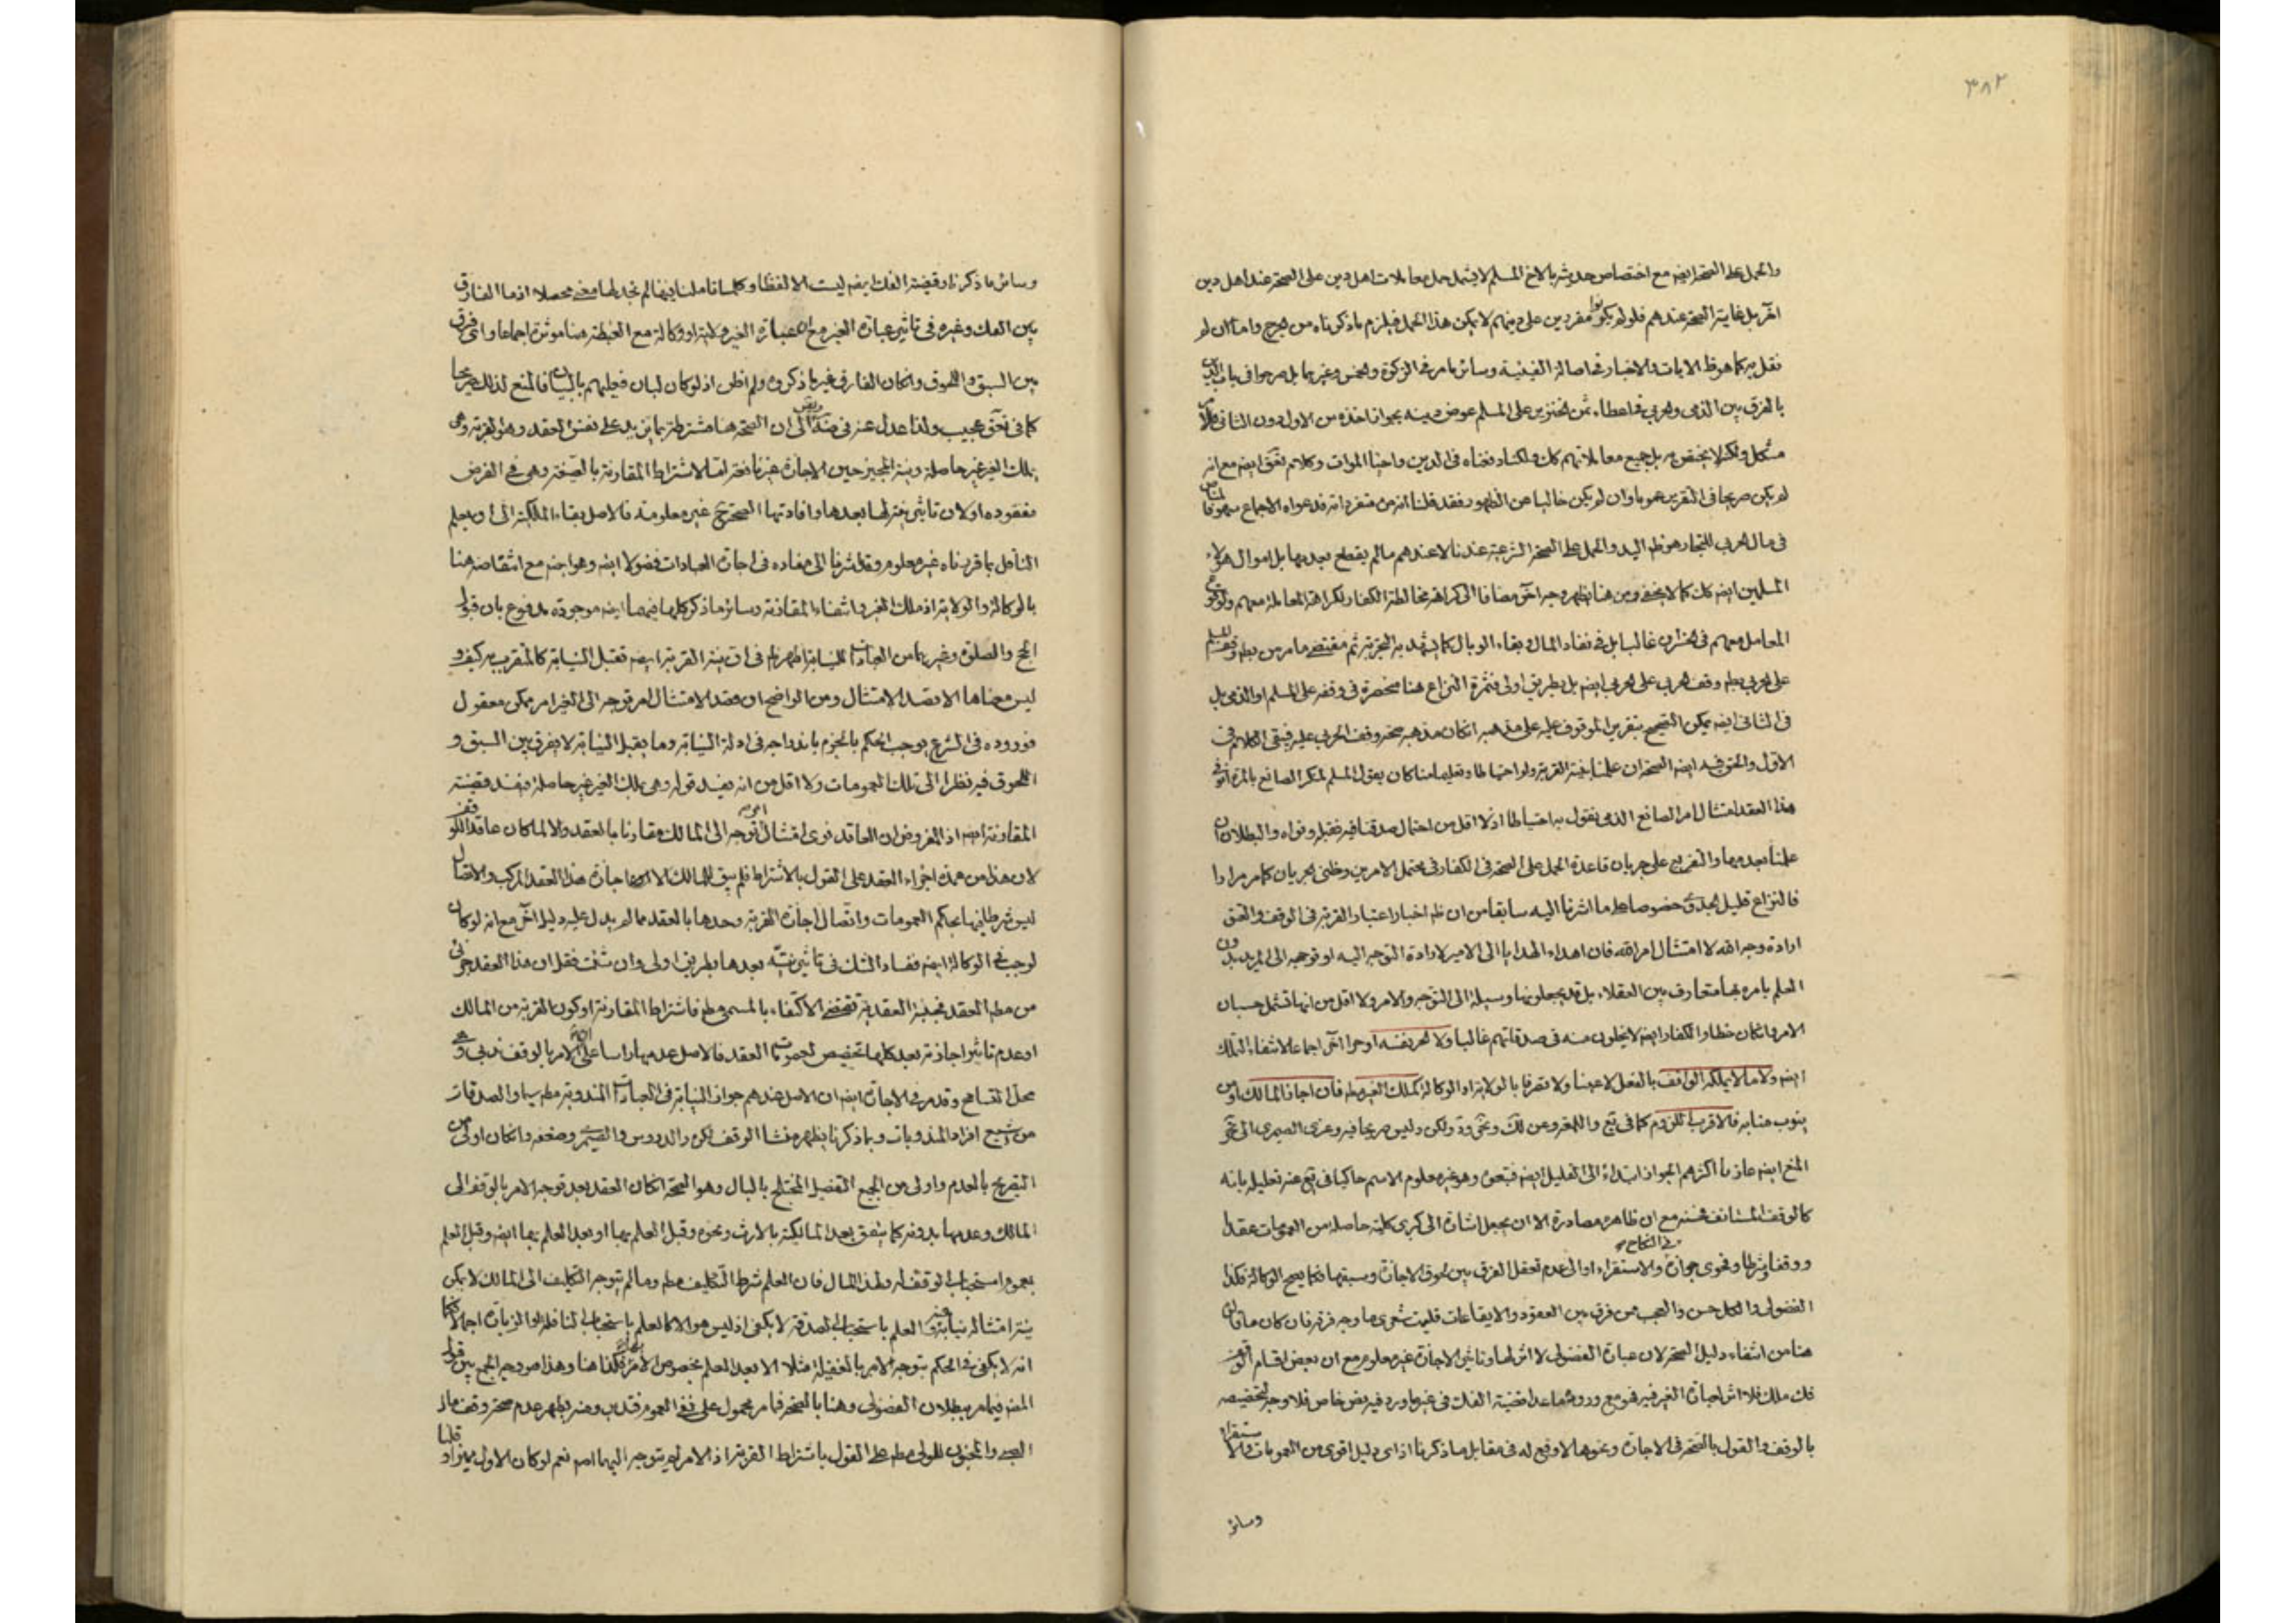 ٣٨٢
والحمل على الصحة ايضه مع اختصاص حدوثه بالاخ المسلم لا يشمل حمل معاملات اهل دين على الصحة عند اهل دين
آخر بل غاية الصحة عندهم فلو لم يكونوا مقردين على دينهم لا يمكن هذا الحمل فيلزم ما ذكرناه من الحرج واما ان لم
نقل به كما هو ظ الايات والاخبار في اصالة الفيئية وسائر ما مر في الزكوة والخمس وغيرهما بل صرحوا في باب الدين
بالفرق بين الذمى والحربي في اعطاء ثمن الخنزير على المسلم عوض دينه بجواز اخذه من الاول دون الثاني
مشكل ولا يختص به بل جميع معاملاتهم كك ولكنا دفعناه في الدين واحياء الموات وكلام تفق ايضه مع انه
لم يكن صريحا في التقرير عموما وان لم يكن خاليا عن الظهور فقد قلنا انه من متفرداته فدعواه الاجماع
في مال الحرب للتجار هو ظ اليد والحمل على الصحة الشرعية عندنا لا عندهم ما لم يقطع بعدمها بل اموال هؤلاء
المسلمين ايضه كك كما لا يخفى ومن هنا يظهر وجه آخر مضافا الى كراهة مخالطة الكفار لكراهة المعاملة معهم
المعامل معهم في الخسران غالبا بل في نفاد المال وبقاء الوبال كما يشهد به التجربة ثم مقتضى ما مر من بطه وقف المسلم
على الحربي بطه وقف الحربي على الحربي ايضه بل بطريق اولى فثمرة النزاع هنا منحصرة في وقفه على المسلم او الذمى بل
في الثاني ايضه يمكن التصحيح بتقرير الموقوف عليه على مذهبه ان كان مذهبه صحة وقف الحربي عليه فيبقى الكلام في
الاول والحق فيه ايضه الصحة ان علمنا بنية القربة ولو احتياطا وتعليما منا كان يقول المسلم لمنكر الصانع
هذا العقد امتثال امر الصانع الذى نقول به احتياطا اذ لا اقل من احتمال صدقنا فيه فقبله ونواه والبطلان ان
علمنا بعدمها والتفريع على جريان قاعدة الحمل على الصحة في الكفار في محتمل الامرين وظنى الجريان كما مر مرارا
فالنزاع قليل الجدوى خصوصا على ما اشرنا اليه سابقا من ان ظه اخبار اعتبار القربة في الوقف والعتق
ارادة وجه الله لا امتثال امر الله فان اهداء الهدايا الى الامير لارادة التوجه اليه او توجهه الى المريد بدون
العلم بامره بها متعارف بين العقلاء بل قد يجعلونها وسيلة الى التوجه والامر ولا اقل من انها تشمل حسبان
الامر وان كان خطأ والكفار ايضه لا يخلون منه في صدقاتهم غالبا ولا الحر نفسه او حرا آخر اجماعا لانتفاء التملك
ايضه ولا ما لا يملكه الواقف بالفعل لا عينا ولا تصرفا بالولاية او الوكالة كملك الغير مطه فان اجاز المالك او من
ينوب منابه فالاقرب اللزوم كما في يع واللمعه وعن لك وتحق ود ولكن وليس صريحا فيه وعزى الصيمرى الى تحق
المنع ايضه عازيا اكثرهم الجواز ابتداء الى القليل ايضه فبتعين وهو غير معلوم الاسم حاكيا في يع عنه تعليله بانه
كالوقف المستانف فحسنه مع ان ظاهره مصادرة الا ان يجعل اشارة الى كبرى كلية حاصلة من العمومات عقدا
ووقفا وشرطا وفحوى جوازه في النكاح والاستقراء او الى عدم تعقل الفرق بين لحوق الاجازة وسبقها فكما يصح الوكالة فكذا
الفضولى والكل حسن والعجب من فرق بين العقود والايقاعات فليت شعرى ما وجه فرقه فان كان ما قالوا
هنا من انتفاء دليل الصحة لان عبارة الفضولى لا اثر لها وتاثير الاجازة غير معلوم مع ان بعض اقسام الوقف
فك ملك فلا اثر لعبارة الغير فيه فهو مع وروده ما عدا قضية الفك في غيرها ورد فيه نص خاص فلا وجه لتخصيصه
بالوقف والقول بالصحة في الاجازة ونحوها لا وقع له في مقابل ما ذكرنا اذ اى دليل اقوى من العمومات والاستقراء
وسائر
وسائر ما ذكرنا وقضية الفك ايضه ليست الا لفظا وكلما تاملنا فيها لم نجد لها معنى محصلا اذ ما الفارق
بين الفك وغيره في تاثير عبارة الغير مع ان عبارة الغير ولاية او وكالة مع الغبطة هنا مؤثرة اجماعا واى فرق
بين السبق واللحوق وان كان الفارق غير ما ذكروه ولم اظن اذ لو كان لبان فعليهم بالبيان فالمنع لذلك صريحا
كما في تحق عجيب ولذا عدل عنه في ضه الى ان الصحة هنا مشترطة بما يزيد على نفس العقد وهو القربة وهى
بملك الغير غير حاصلة ونية المجيز حين الاجازة غير نافعة اما لاشتراط المقارنة بالصيغة وهى في الفرض
مفقوده او لان تاثير نيته لها بعدها وافادتها الصحة ح غير معلومة فالاصل بقاء الملكية الى ان يعلم
الناقل بما قررناه غير معلوم وقد اشرنا الى مفاده في اجازة العبادات فضولا ايضه وهو ايضه مع انتقاضه هنا
بالوكالة والولاية اذ ملك الغير وانتفاء المقارنة وسائر ما ذكر كلها فيهما ايضه موجودة مدفوع بان قبول
الحج والصلوة وغيرهما من العبادات للنيابة اظهر في ان نية القربة ايضه تقبل النيابة كالمقرب به كيف و
ليس معناها الا قصد الامتثال ومن الواضح ان قصد الامتثال لامر توجه الى الغير امر ممكن معقول
فوروده في الشرع يوجب الحكم بالجزم باندراجه في ادلة النيابة وما يقبل النيابة لا يفرق بين السبق و
اللحوق فيه نظرا الى تلك العمومات ولا اقل من انه يفيد قوله وهى بملك الغير غير حاصلة ويفسد قضية
المقارنة ايضه اذ المفروض ان العاقد نوى امتثال امر توجه الى المالك مقارنا بالعقد والا لما كان عاقدا للوقف
لان هذا من عمدة اجزاء العقد على القول بالاشتراط فلم يبق للمالك الا اجازة هذا العقد المركب والاتصال
ليس شرطا فيها بحكم العمومات واتصال اجازة القربة وحدها بالعقد مما لم يدل عليه دليل آخر مع انه لو كان
لوجب في الوكالة ايضه ففساد الشك في تاثير نيته بعدها بطريق اولى وان شئت فقل ان هذا العقد جزئى
من مطه العقد فحجية العقدية تقتضى الاكتفاء بالمسمى مطه فاشتراط المقارنة او كون القربة من المالك
او عدم تاثير اجازته بعد كلها تخصيص لعمومات العقد فالاصل عدمها راسا على ان الامر بالوقف ندبى وفى
محل التسامح وقد مر في الاجازة ايضه ان الاصل عندهم جواز النيابة في العبادات المندوبة مطه سيما والصدقات
من اشيع افراد المندوبات وبما ذكرنا يظهر منشا الوقف لكره والدروس والصيمرى وضعفه وان كان اولى من
التصريح بالعدم واولى من الجميع التفصيل المختلج بالبال وهو الصحة ان كان العقد بعد توجه الامر بالوقف الى
المالك وعدمها بدونه كما يتفق بعد المالكية بالارث ونحوه وقبل العلم بها او بعد العلم بها ايضه وقبل العلم
بعموم استحباب الوقف له ولهذا المال فان العلم شرط التكليف مطه وما لم يتوجه التكليف الى المالك لا يمكن
نية امتثاله نيابة عنه والعلم باستحباب الصدقة لا يكفى اذ ليس هو الا كالعلم باستحباب النافلة او الزيارة اجمالا فكما
انه لا يكفى في الحكم بتوجه الامر بالغفيلة مثلا الا بعد العلم بخصوص الامر بها فكذا هنا وهذا هو وجه الجمع بين قول
المنع فيما مر ببطلان الفضولى وهنا بالصحة فما مر محمول على نفى العموم فتدبر ومنه يظهر عدم صحة وقف مال
الصبى والمجنون للولى مطه على القول باشتراط القربة اذ الامر لم يتوجه اليهما اصه نعم لو كان الاول مميزا وقلنا